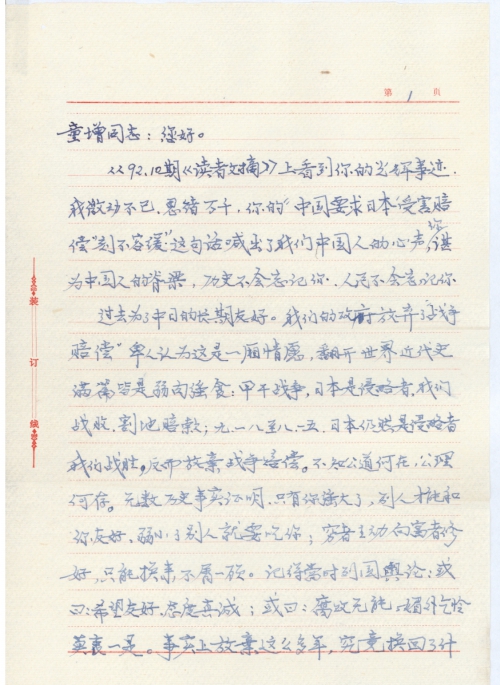 第 1 页
童增同志：您好。
从92.10期《读者文摘》上看到你的光辉事迹.
我激动不已，思绪万千，你的“中国要求日本受害赔
偿“刻不容缓”这句话喊出了我们中国人的心声，你堪
为中国人的脊梁，历史不会忘记你．人民不会忘记你
过去为了中日的长期友好。我们的政府放弃了“战争
赔偿”鄙人认为这是一厢情愿，翻开世界近代史
满篇皆是弱肉强食：甲午战争，日本是侵略者，我们
战败．割地赔款；九一八至八一五．日本仍然是侵略者
我们战胜，反而放弃战争赔偿。不知公道何在，公理
何存。无数历史事实证明．只有你强大了，别人才能和
你友好．弱小了别人就要吃你；穷者主动向富者修
好，只能换来不屑一顾。记得当时列国舆论：或
曰：希望友好．态度真诚；或曰：腐败无能．媚外乞怜
莫衷一是。事实上放弃这么多年，究竟换回了什
装
订
线